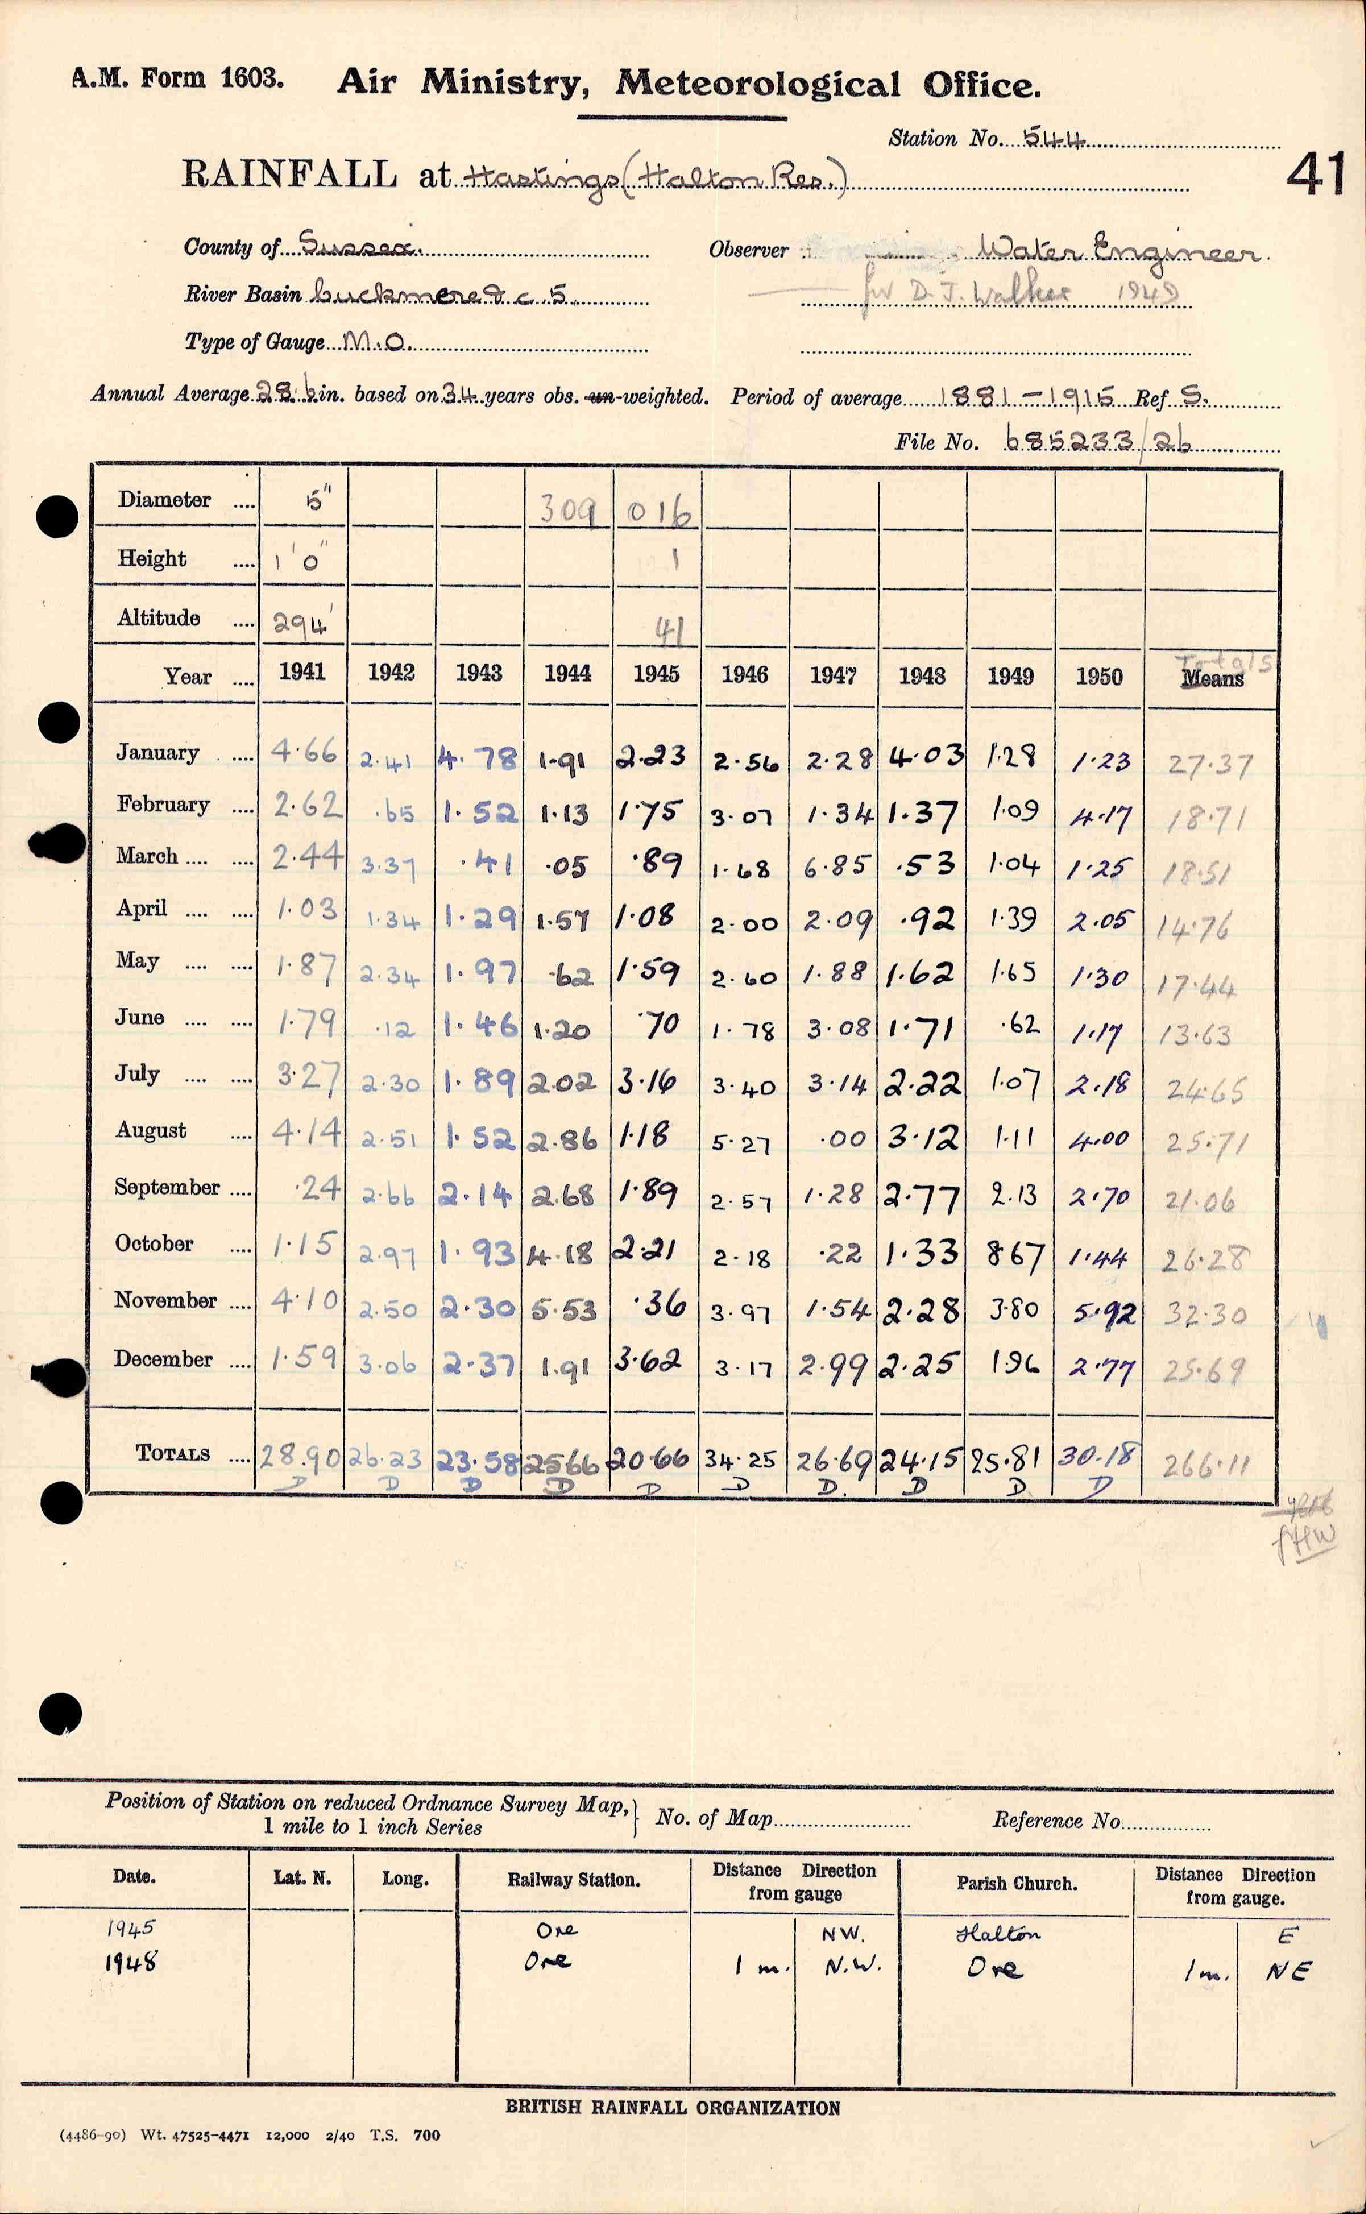 A.M. Form 1603. Air Ministry, Meteorological Office.
Station No. 544
RAINFALL at Hastings (Halton Res.)
41
County of Sussex. Observer Water Engineer.
River Basin Cuckmere & c 5 for D. J. Walker 1949
Type of Gauge M.O.
Annual Average 28.6 in. based on 34 years obs. un-weighted. Period of average 1881-1915 Ref S.
File No. 685233/26
Diameter .... 5" 309 016
Height .... 1' 0" 1
Altitude .... 294' 41
Totals
Year .... 1941 1942 1943 1944 1945 1946 1947 1948 1949 1950 Means
January .... 4.66 2.41 4.78 1.91 2.23 2.56 2.28 4.03 1.28 1.23 27.37
February .... 2.62 .65 1.52 1.13 1.75 3.07 1.34 1.37 1.09 4.17 18.71
March .... .... 2.44 3.37 .41 .05 .89 1.68 6.85 .53 1.04 1.25 18.51
April .... .... 1.03 1.34 1.29 1.57 1.08 2.00 2.09 .92 1.39 2.05 14.76
May .... .... 1.87 2.34 1.97 .62 1.59 2.60 1.88 1.62 1.65 1.30 17.44
June .... .... 1.79 .12 1.46 1.20 .70 1.78 3.08 1.71 .62 1.17 13.63
July .... .... 3.27 2.30 1.89 2.02 3.16 3.40 3.14 2.22 1.07 2.18 24.65
August .... 4.14 2.51 1.52 2.86 1.18 5.27 .00 3.12 1.11 4.00 25.71
September .... .24 2.66 2.14 2.68 1.89 2.57 1.28 2.77 2.13 2.70 21.06
October .... 1.15 2.97 1.93 4.18 2.21 2.18 .22 1.33 8.67 1.44 26.28
November .... 4.10 2.50 2.30 5.53 .36 3.97 1.54 2.28 3.80 5.92 32.30
December .... 1.59 3.06 2.37 1.91 3.62 3.17 2.99 2.25 1.96 2.77 25.69
TOTALS .... 28.90 26.23 23.58 25.66 20.66 34.25 26.69 24.15 25.81 30.18 266.11
D D D D D D D. D D D
Position of Station on reduced Ordnance Survey Map, } No. of Map Reference No.
1 mile to 1 inch Series
Date. Lat. N. Long. Railway Station. Distance Direction from gauge Parish Church. Distance Direction from gauge.
1945 Ore NW. Halton E
1948 Ore 1 m. N.W. Ore 1 m. NE
BRITISH RAINFALL ORGANIZATION
(4486-90) Wt. 47525-4471 12,000 2/40 T.S. 700